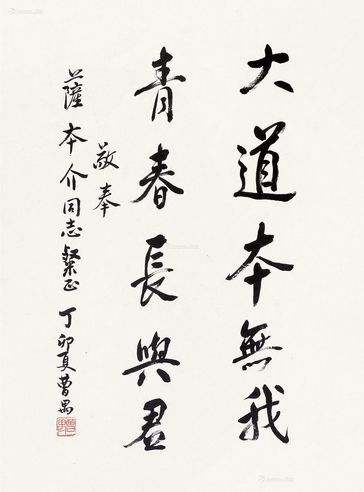 大道本無我
青春長與君
敬奉
薩本介同志粲正 丁卯夏曹禺